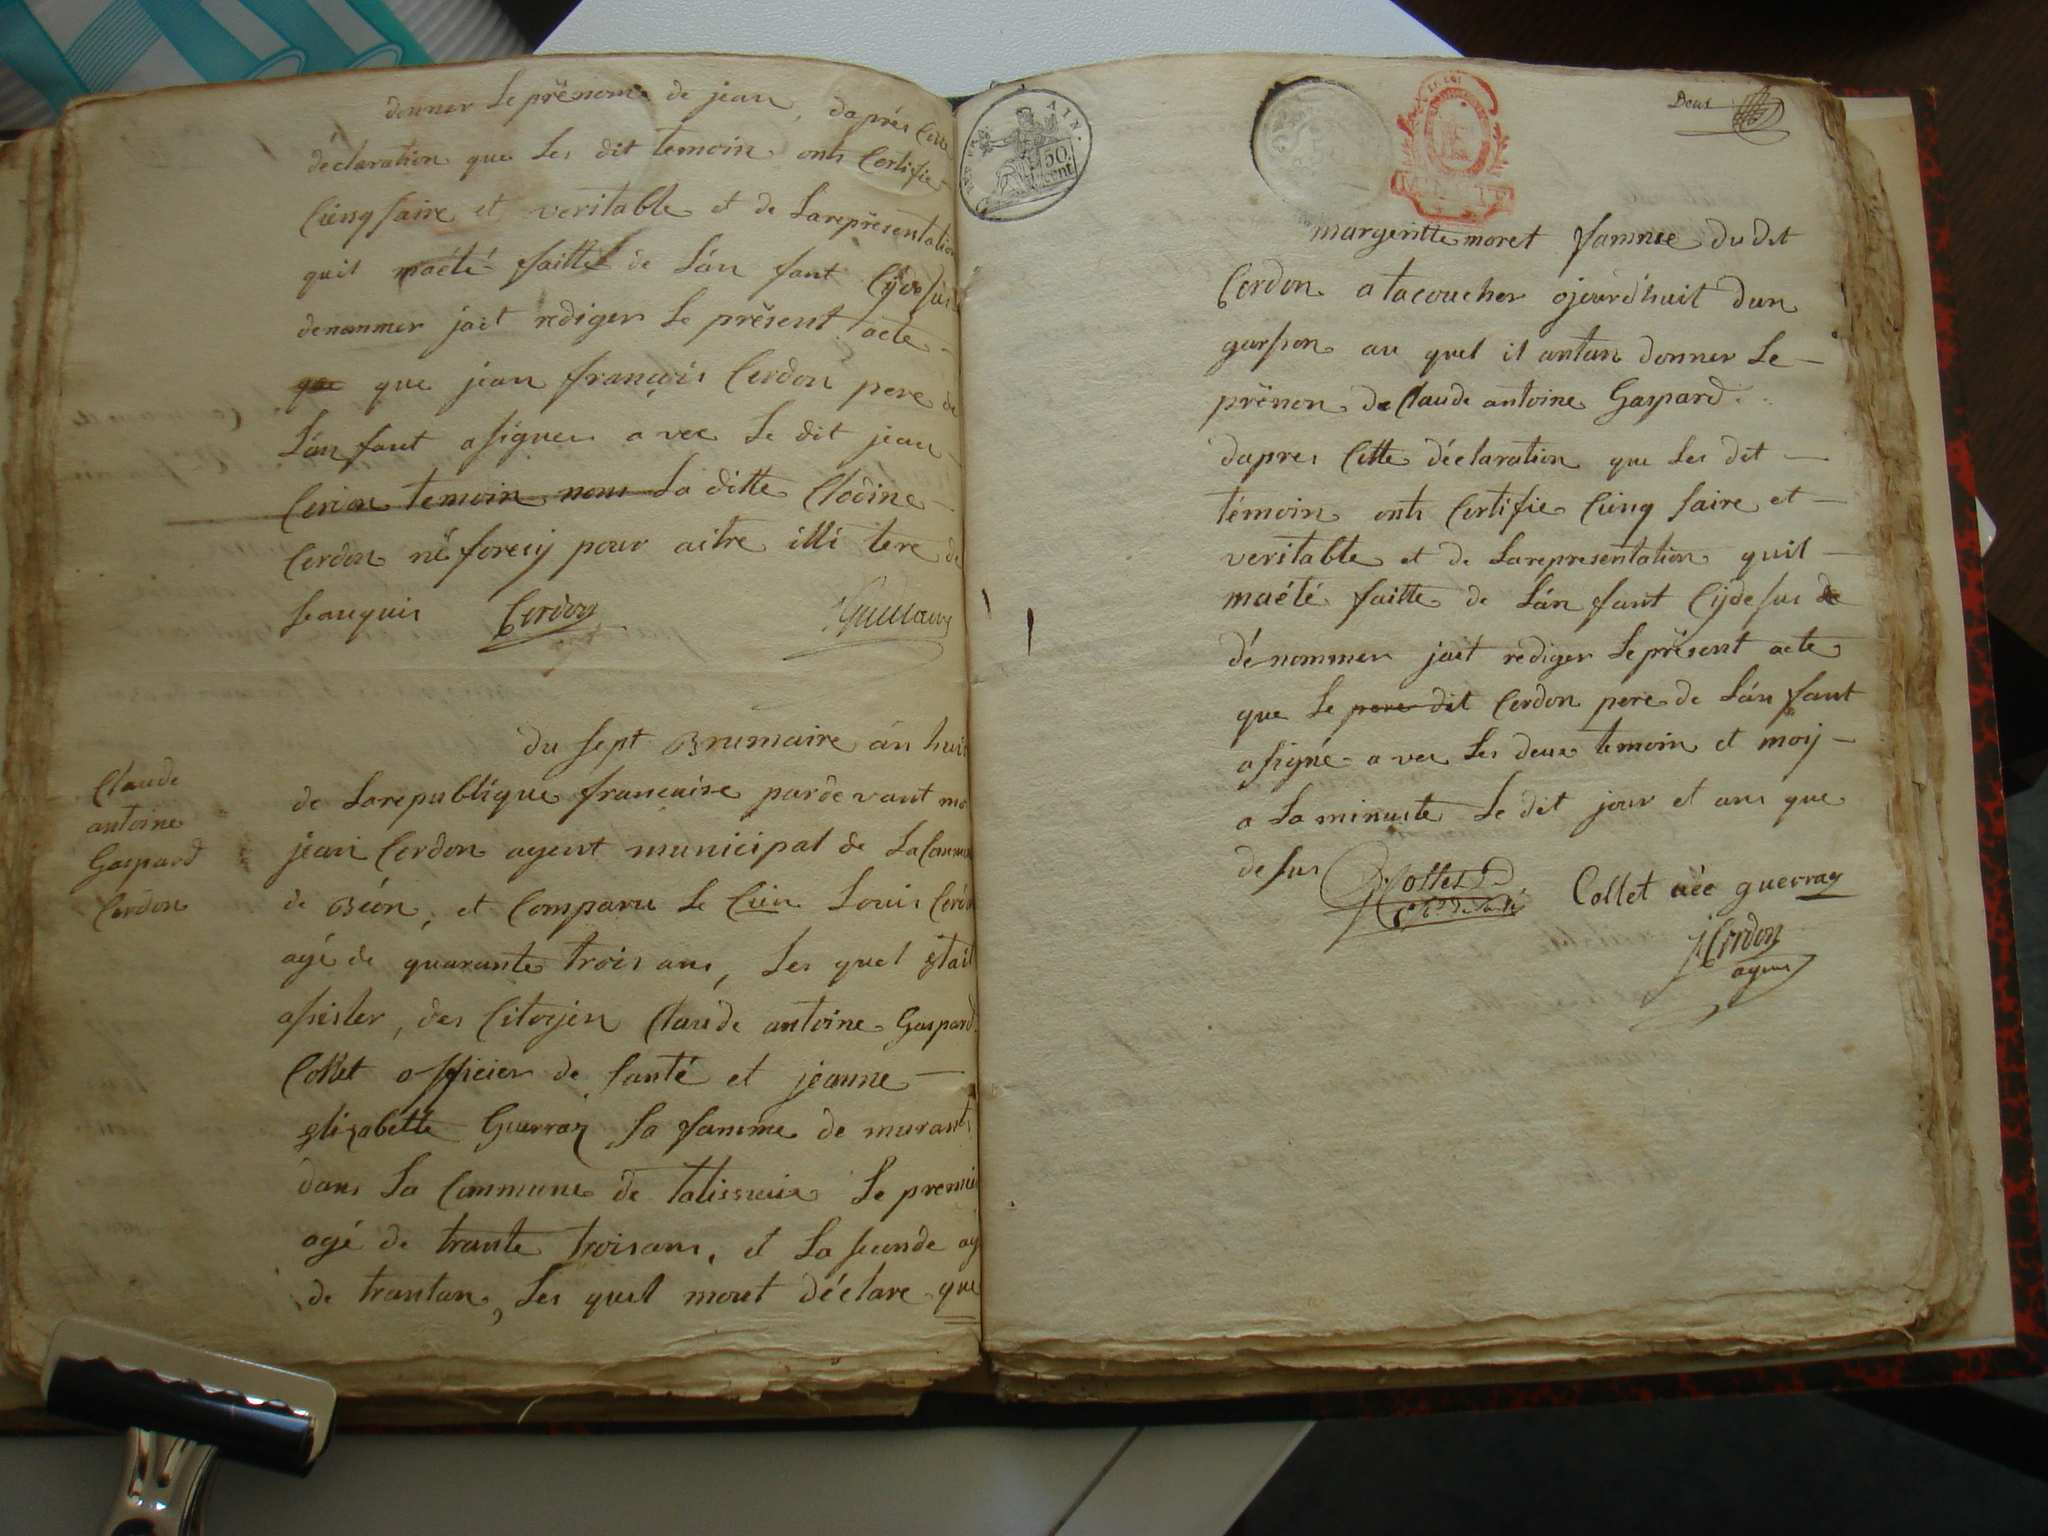 donner le prénom de jean, daprés Cette
déclaration que Les dit temoin onts Certifie
Cienq saire et veritable et de Larepresentation
quil maété faitte de Lán fant Cÿde sus
denommer jait rediger Le présent acte
que que jean françois Cerdon pere de
Lán fant a signer avec Le dit jean
Cerion temoin nous La ditte Clodine
Cerdon né forecy pour aitre illi tere de
Seauquis Cerdon
du sept Brumaire án huit
Claude
antoine
Gaspard
Cerdon
de Larepublique francaise pardevant moi
jean Cerdon agent municipal de La Commune
de Béon, et Comparu Le Cien Louis Cerdon
agé de quarante trois ans, Les quel Etait
asister, des Citoyen Claude antoine Gaspard
Collet officier de santé et jeanne
Elizabette Guerray sa famme de murants
dans La Commune de talissieux Le premier
agé de trante troisans, et La seconde agé
de trantan, Les quel mont déclare que
AIN.
50 cent
Deux
margeritte moret famme du dit
Cerdon a tacoucher ojourdhuit dun
garson au quel il antan donner Le
prénon de Claude antoine Gaspard.
dapres Cette déclaration que Les dit
témoin onts Certifie Cienq saire et
veritable et de Larepresentation quil
maété faitte de Lán fant Cÿdesus de
dénommer jait rediger Le présent acte
que Le pere dit Cerdon pere de Lán fant
a signé avec Les deux temoin et moÿ
a La minuste Le dit jour et ans que
desus Collet
Collet née guerray
J Cerdon
agent